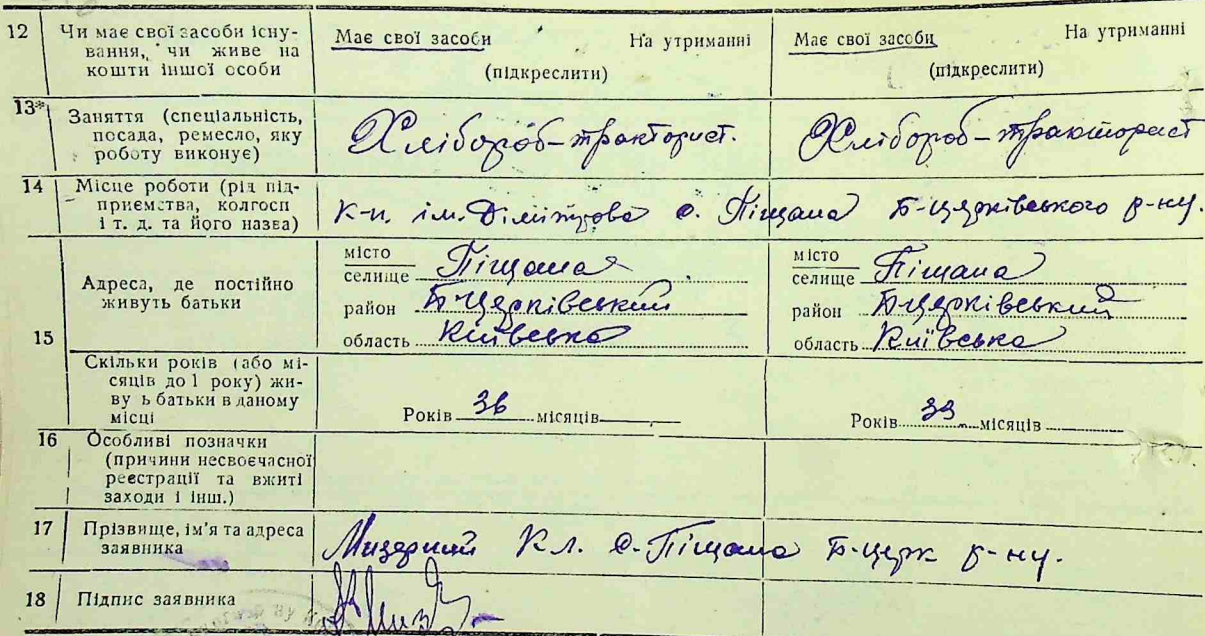 12 Чи має свої засоби існу-
вання, чи живе на
кошти іншої особи
Має свої засоби На утриманні
(підкреслити)
Має свої засоби На утриманні
(підкреслити)
13* Заняття (спеціальність,
посада, ремесло, яку
роботу виконує)
Хлібороб-тракторист.
Хлібороб-тракторист
14 Місце роботи (рід під-
приємства, колгосп
і т. д. та його назва)
К-п. ім. Дімітрова с. Піщана Б-церківського р-ну.
15 Адреса, де постійно
живуть батьки
місто
селище Піщана
район Б-Церківський
область Київська
місто
селище Піщана
район Б-Церківський
область Київська
Скільки років (або мі-
сяців до 1 року) жи-
ву ь батьки в даному
місці
Років 36 місяців
Років 33 місяців
16 Особливі позначки
(причини несвоєчасної
реєстрації та вжиті
заходи і інш.)
17 Прізвище, ім'я та адреса
заявника
Мизерний Кл. с. Піщана Б-церк р-ну.
18 Підпис заявника